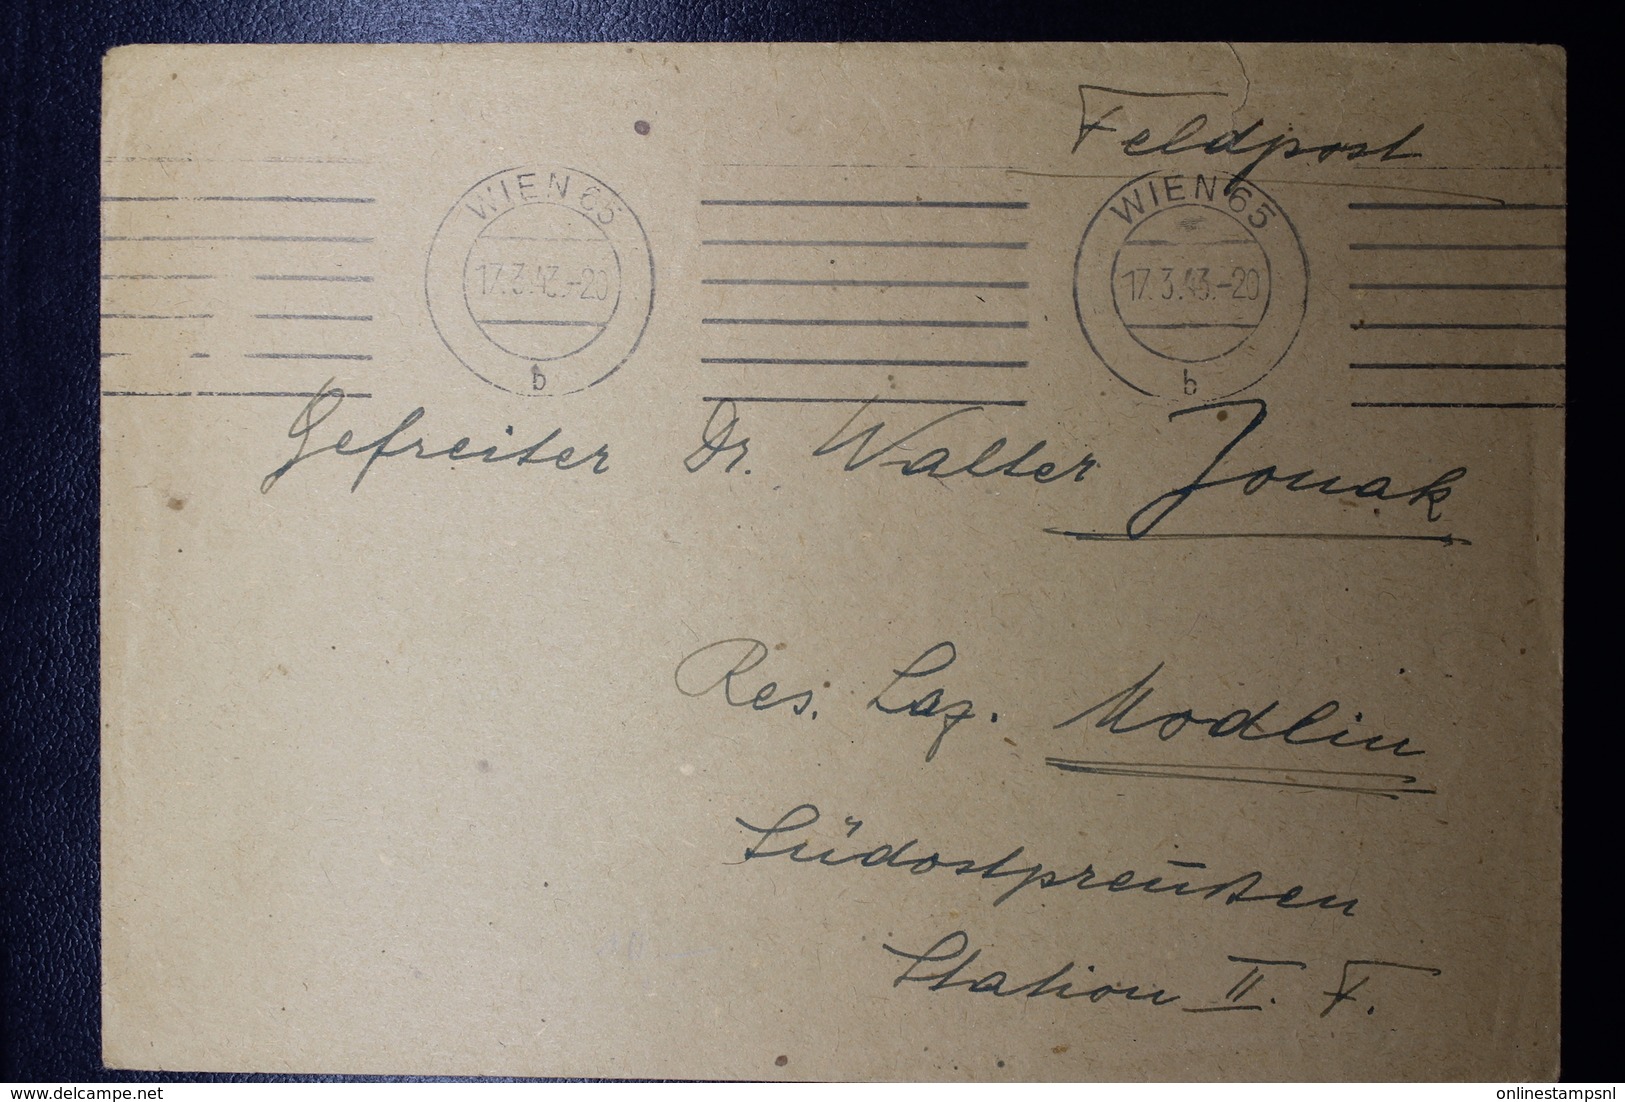 Feldpost
WIEN 65
17.3.43.-20
b
WIEN 65
17.3.43.-20
b
Gefreiter Dr. Walter Jonak
Res. Laz. Modlin
Südostpreußen
Station II. F.
onlinestampsnl